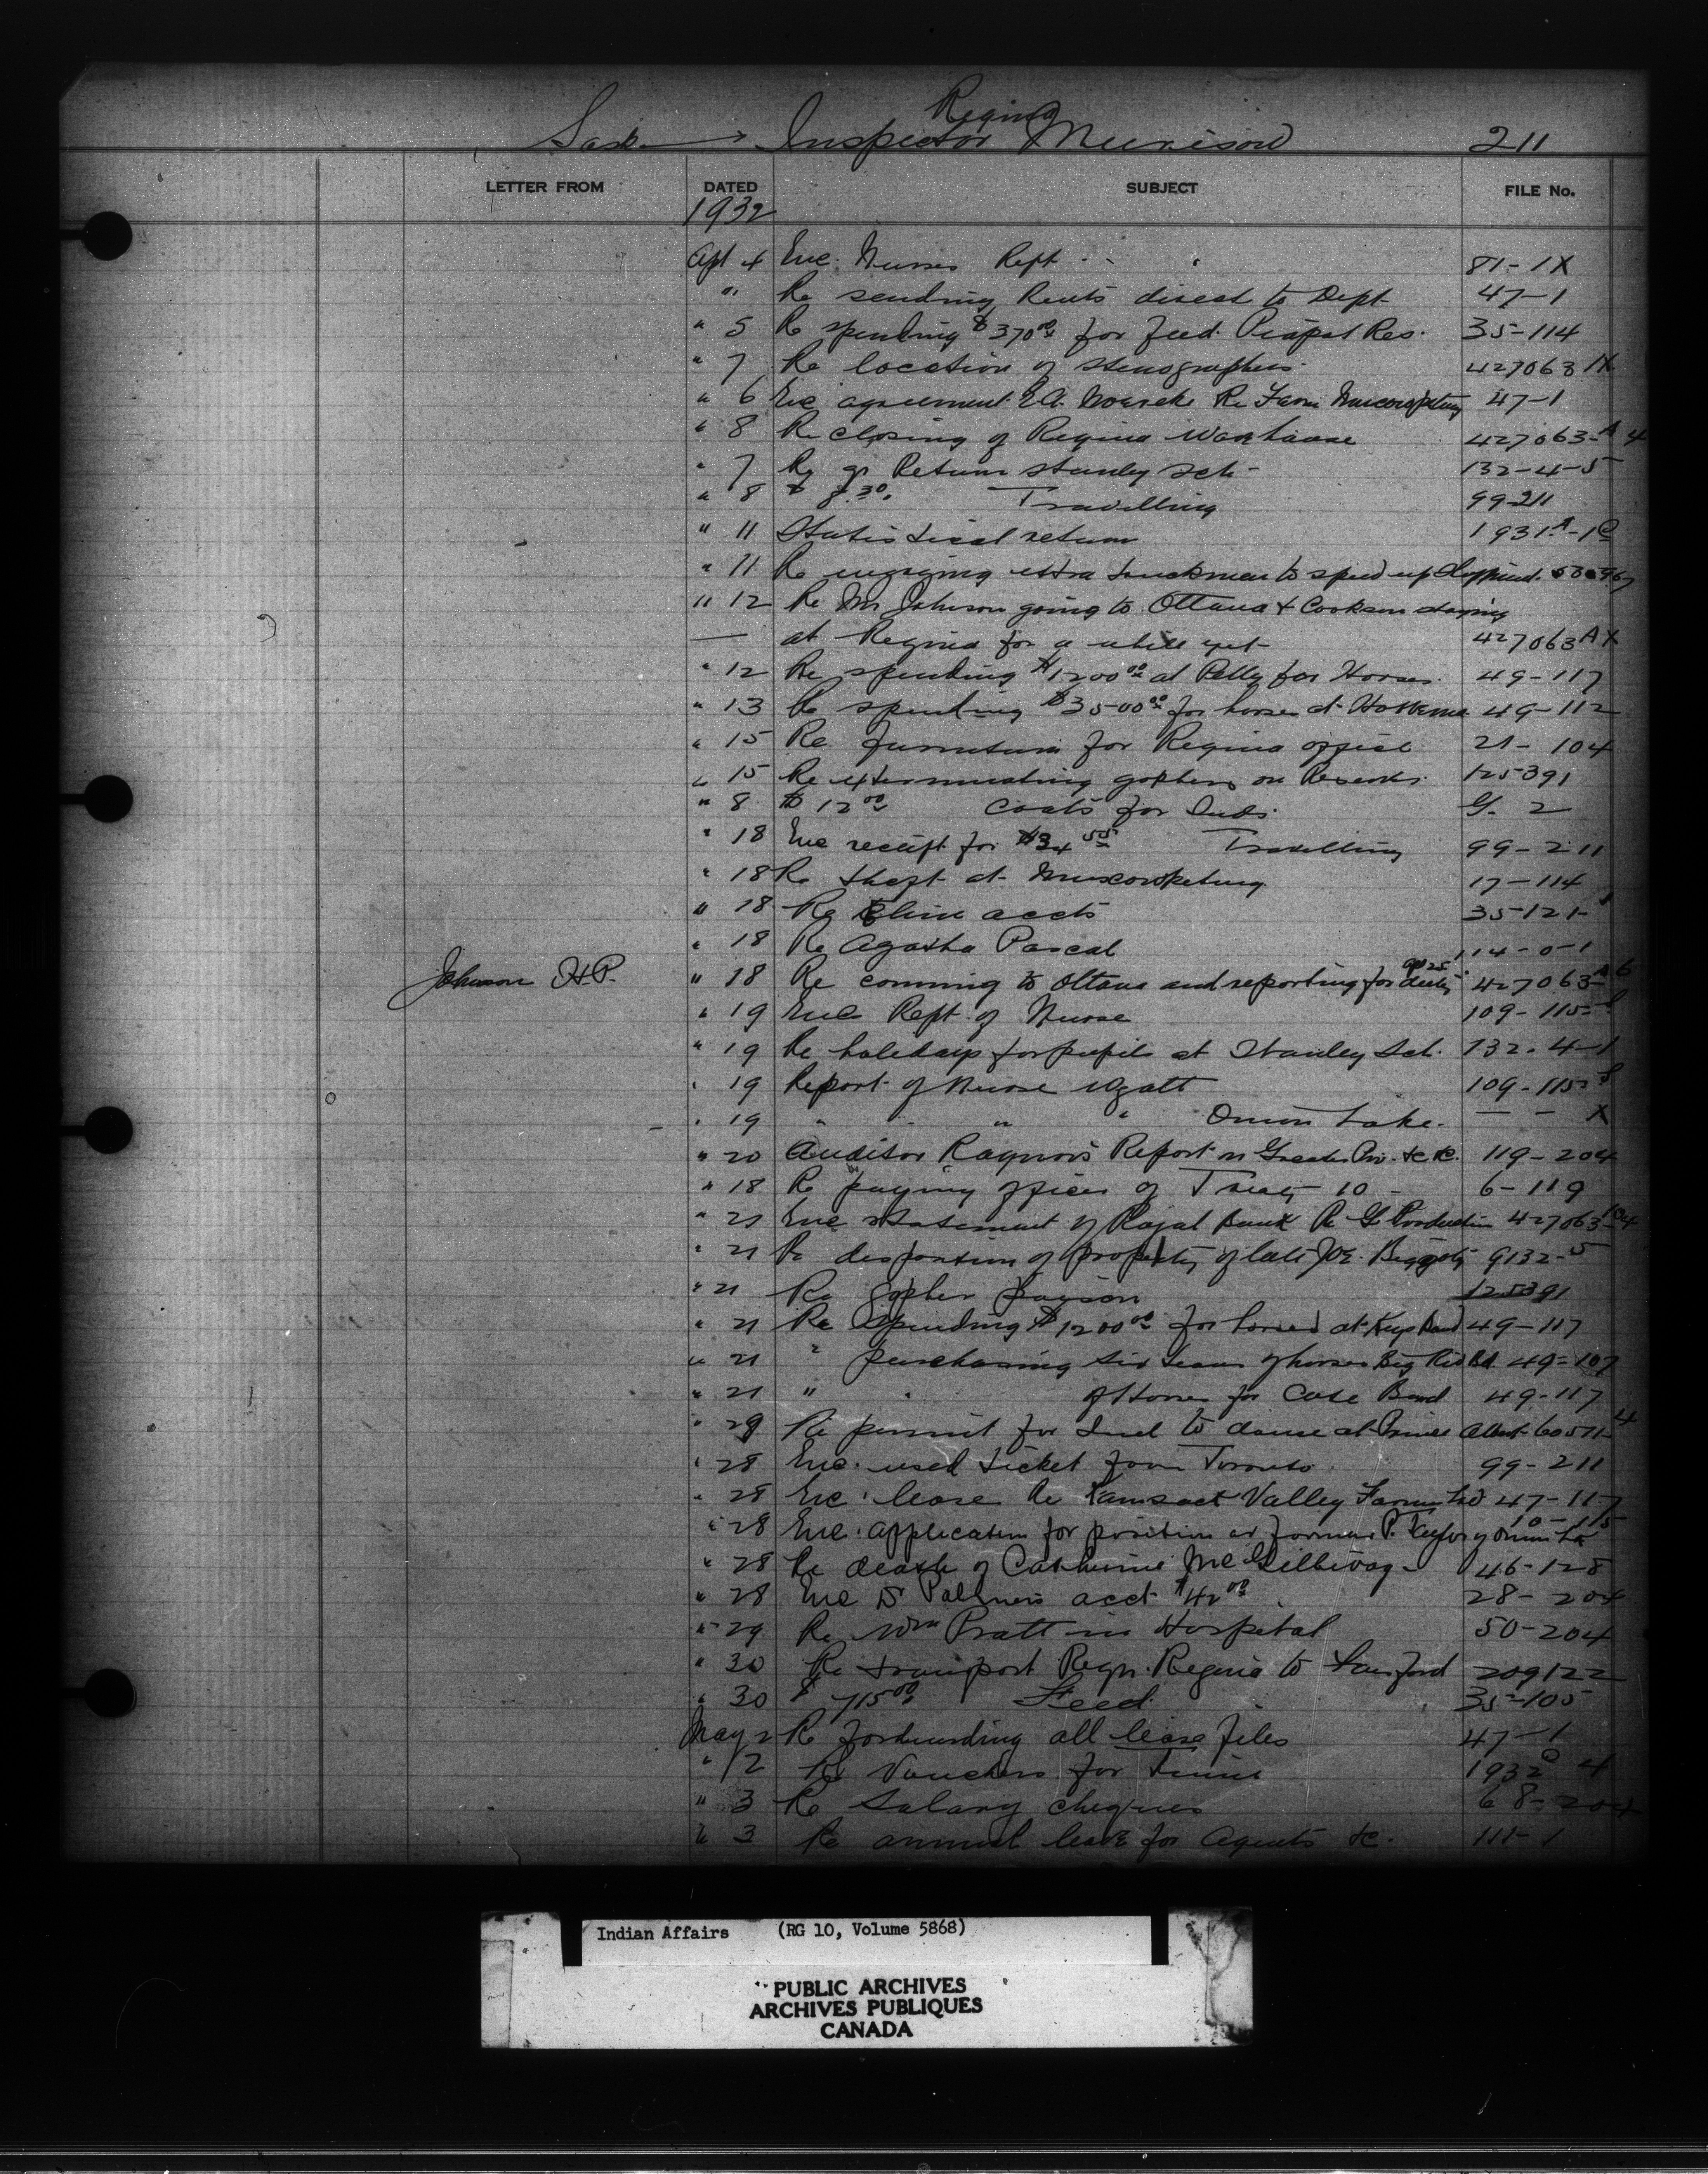 Regina
Sask → Inspector Murison 211
LETTER FROM DATED SUBJECT FILE No.
1932
Apl 4 Enc. Nurses Rept 81-1X
" Re sending Rents direct to Dept 47-1
" 5 Re spending $370.00 for feed. Piapot Res. 35-114
" 7 Re location of stenographers 427063 1X
" 6 Enc agreement E.A. Re Farm Muscowpetung 47-1
" 8 Re closing of Regina Warehouse 427063-A 4
" 7 Re qr Return Stanley Sch- 132-4-5
" 8 $ 8.30. Travelling 99-211
" 11 Statistical return 1931A-1C
" 11 Re engaging extra truckman to speed up
" 12 Re Mr Johnson going to Ottawa & Cookson staying
— at Regina for a while yet- 427063 A X
" 12 Re spending $1200.00 at Pelly for Horses. 49-117
" 13 Re spending $3500.00 for horses at 49-112
" 15 Re furniture for Regina office 21-104
" 15 Re exterminating gophers on Reserves. 125391
" 8 $ 12.00 Coats for Inds. G. 2
" 18 Enc receipt for $34.55 Travelling 99-211
" 18 Re theft at Muscowpetung 17-114
" 18 Re accts 35-121-1
" 18 Re Agatha Pascal 114-0-1
Johnson H.P. " 18 Re comming to Ottawa and reporting for duty Ap 25. 427063-A 6
" 19 Enc Rept. of Nurse 109-115-S
" 19 Re holidays for pupils at Stanley Sch. 132-4-1
" 19 Report of Nurse Wyatt 109-115-S
" 19 " " " Onion Lake. — — X
" 20 Auditor Raynor's Report on Greater Pro. &c &c. 119-204
" 18 Re paying officer of Treaty 10 - 6-119
" 21 Enc statement of Royal Bank Re G. Production 427063-A 4
" 21 Re disposition of property of late Joe. 9132-5
" 21 Re Gopher poyson 125391
" 21 Re Spending $1200.00 for horses at Keys Band 49-117
" 21 " purchasing six teams of horses Big Bd. 49-107
" 21 " " of Horses for Cote Band 49-117
" 29 Re permit for Ind to dance at Prince Albert- 60511-4
" 28 Enc. used ticket from Toronto 99-211
" 28 Enc. lease Re Kamsack Valley Farm Ltd 47-117
" 28 Enc. application for position as farmer P. Taylor of Onion Lk 10-115
" 28 Re death of Catherine McGillivary- 46-128
" 28 Enc D. Palmers acct $42.00 28-204
" 29 Re Wm Pratt in Hospital 50-204
" 30 Re transport Reqn. Regina to 209122
" 30 $ 715.00 Feed. 35-105
May 2 Re forwarding all lease files 47-1
" 2 Re Vouchers for 1932 C 4
" 3 Re Salary cheques 68-204
" 3 Re annual leave for Agents &c. 111-1
Indian Affairs (RG 10, Volume 5868)
PUBLIC ARCHIVES
ARCHIVES PUBLIQUES
CANADA